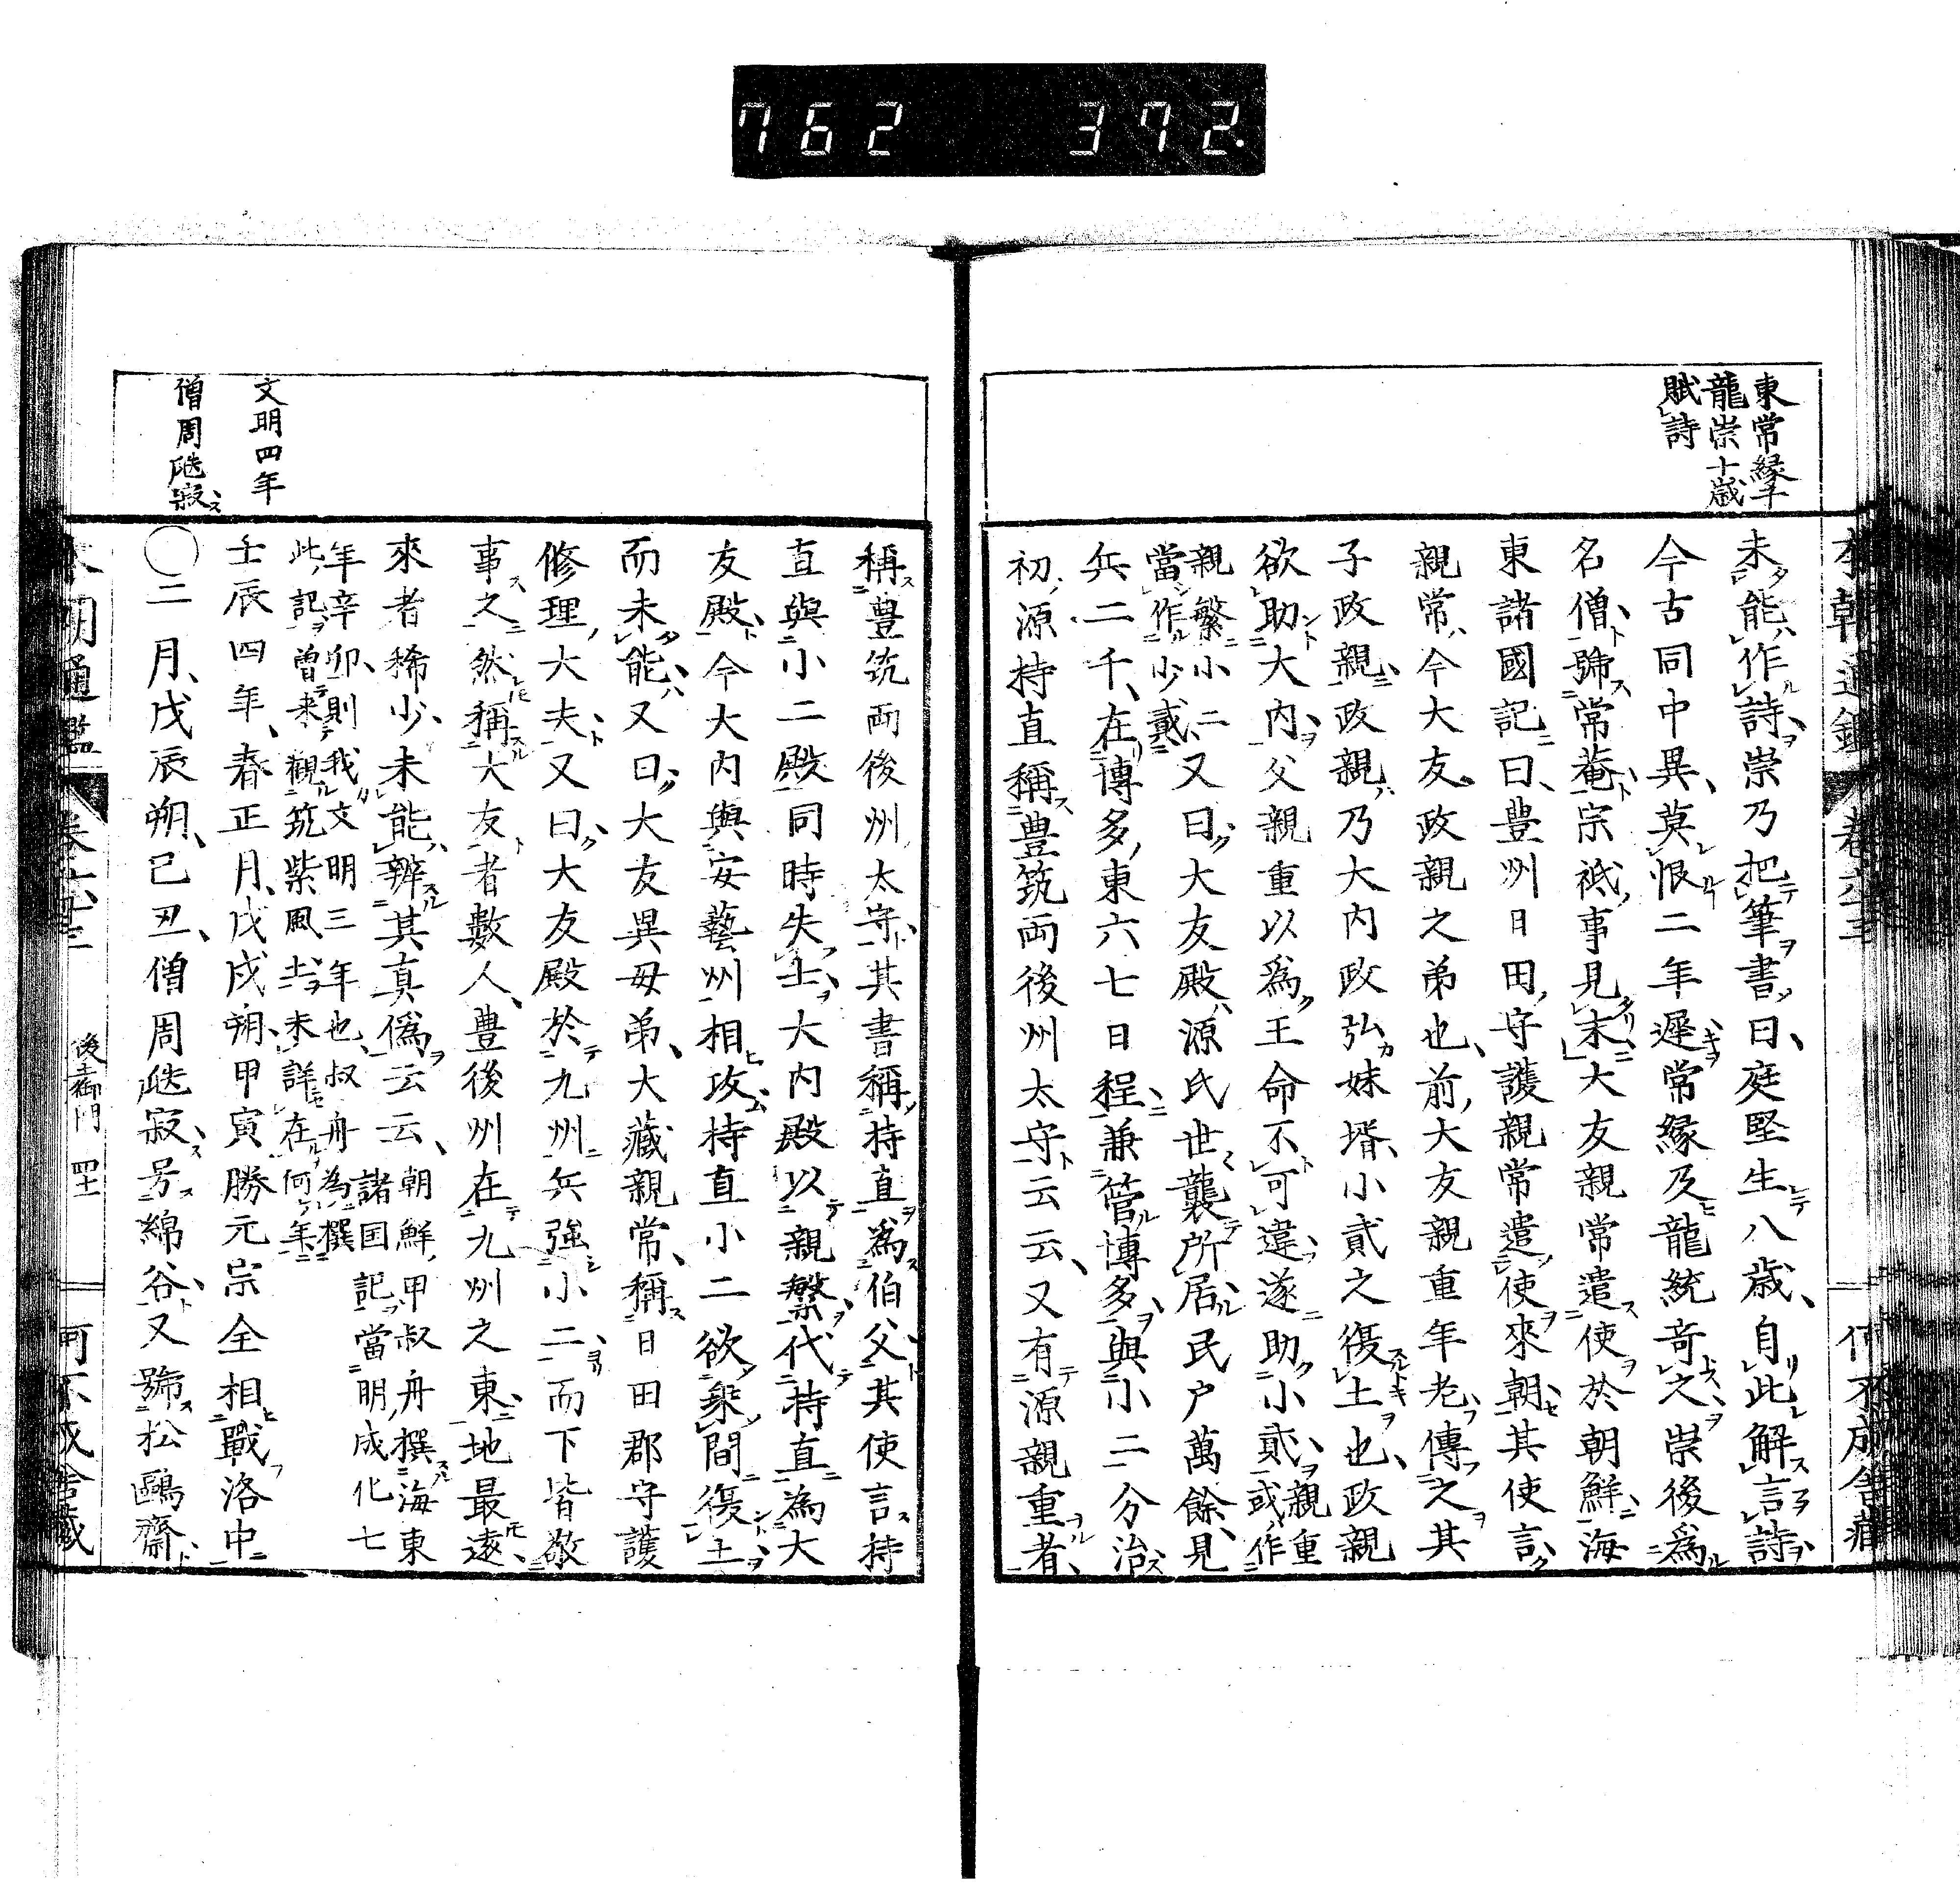 762 372.
東常縁子
龍崇十歳
賦詩
未能作詩崇乃把筆書曰庭堅生八歳自此解言詩
今古同中異莫恨二年遲常縁及龍統奇之崇後為
名僧號常菴宗祗事見末大友親常遣使於朝鮮海
東諸國記曰豊州日田守護親常遣使來朝其使言
親常今大友政親之弟也前大友親重年老傳之其
子政親政親乃大内政弘妹壻小貳之復土也政親
欲助大内父親重以爲王命不可違遂助小貳親重或作
親繁小二當作少貳又曰大友殿源氏世襲所居民戸萬餘見
兵二千在博多東六七日程兼管博多與小二分治
初源持直稱豊筑両後州太守云云又有源親重者
本朝通鑑 卷六十三 何不成舎藏
文明四年
僧周𤺥寂
稱豊筑両後州太守其書稱持直爲伯父其使言持
直與小二殿同時失土大内殿以親繁代持直為大
友殿今大内與安藝州相攻持直小二欲乗間復土
而未能又曰大友異母弟大藏親常稱日田郡守護
修理大夫又曰大友殿於九州兵強小二而下皆敬
事之然稱大友者數人豊後州在九州之東地最遠
來者稀少未能辨其真僞云云朝鮮申叔舟撰海東
諸国記當明成化七
年辛卯則我文明三年也叔舟為撰
此記曽来觀筑紫風土未詳在何年
壬辰四年春正月戊戌朔甲寅勝元宗全相戰洛中
〇二月戊辰朔己丑僧周寂号綿谷又號松鷗齋
本朝通鑑 卷六十三 後土御門 四十一 何不成舎藏